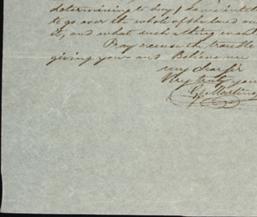 determining to buy, 
to go over the whole of the land
it, and what such a thing
Pray excuse the trouble
giving you and Believe me
my dear Sir
Very truly yours